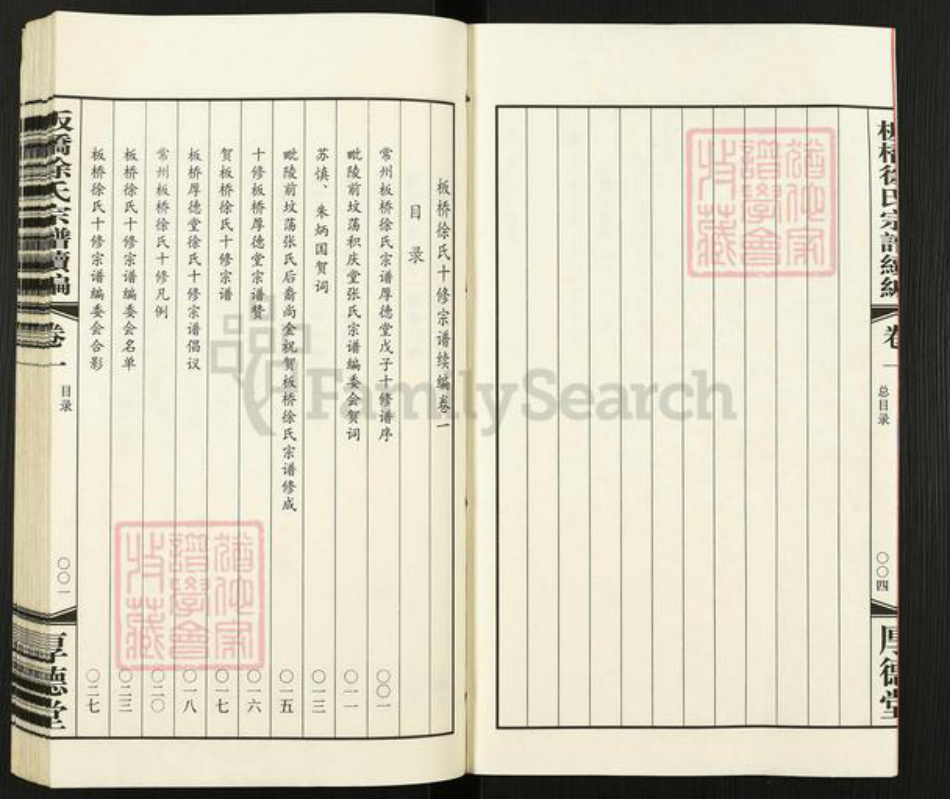 板橋徐氏宗譜續編
卷一
总目录
〇〇四
厚德堂
板桥徐氏十修宗谱续编卷一
目录
常州板桥徐氏宗谱厚德堂戊子十修谱序 〇〇一
毗陵前坟荡积庆堂张氏宗谱编委会贺词 〇一一
苏慎、朱炳国贺词 〇一三
毗陵前坟荡张氏后裔尚金祝贺板桥徐氏宗谱修成 〇一五
十修板桥厚德堂宗谱赞 〇一六
贺板桥徐氏十修宗谱 〇一七
板桥厚德堂徐氏十修宗谱倡议 〇一八
常州板桥徐氏十修凡例 〇二〇
板桥徐氏十修宗谱编委会名单 〇二三
板桥徐氏十修宗谱编委会合影 〇二七
板橋徐氏宗譜續編
卷一
目录
〇〇一
厚德堂
FamilySearch